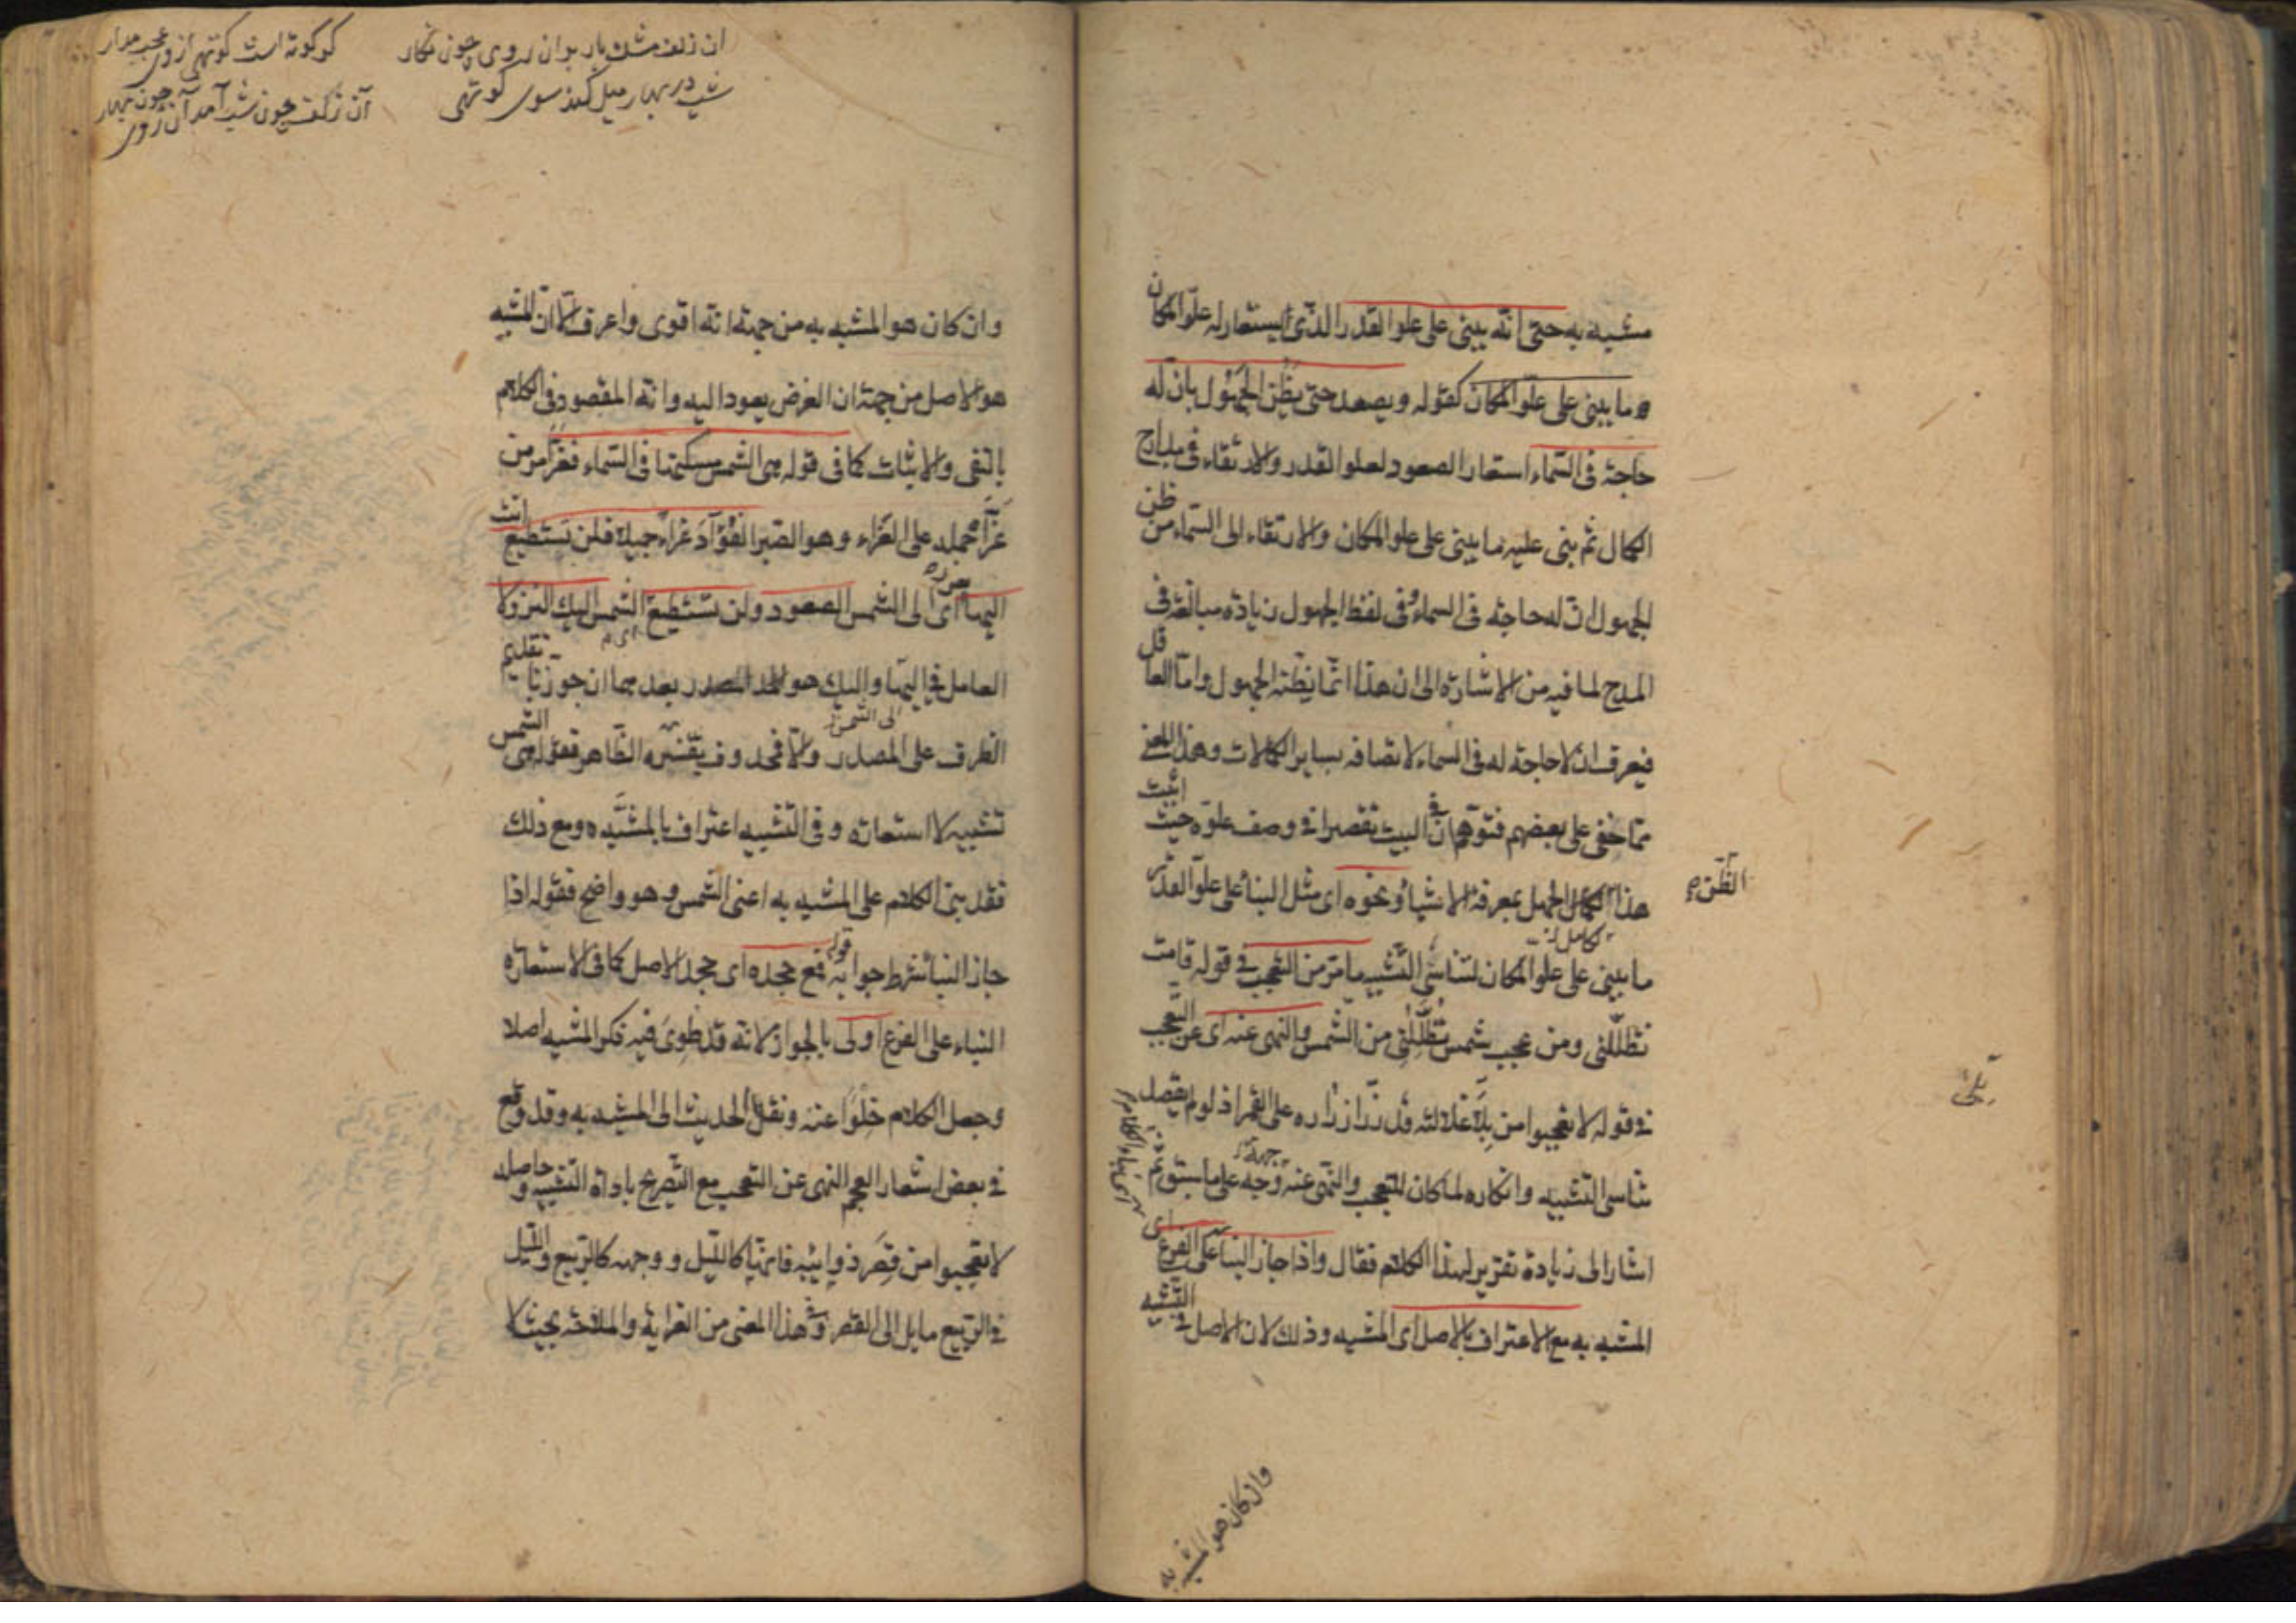 مشبه به حتى انّه يبنى على علو القدر الذى يستعار له علو المكان
ما يبنى على علو المكان كقوله ويصعد حتى يظن الجهول بان له
حاجة فى السماء استعار الصعود لعلو القدر والارتقاء فى مدارج
الكمال ثم بنى عليه ما يبنى على علو المكان والارتقاء الى السماء من ظن
الجهول ان له حاجة فى السماء وفى لفظ الجهول زيادة مبالغة فى
المدح لما فيه من الاشارة الى ان هذا انما يظنه الجهول واما العاقل
فيعرف ان لا حاجة له فى السماء لاتصافه بساير الكمالات وهذا المعنى
مما خفى على بعضهم فتوهم ان فى البيت تقصيرا فى وصف علوه حيث اثبت
هذا الظن الكامل الجهل بمعرفة الاشياء ونحوه اى مثل البناء على علو القدر
ما يبنى على علو المكان لتناسى التشبيه ما مر من التعجب فى قوله قامت
تظللنى ومن عجب شمس تظللنى من الشمس والنهى عنه اى عن التعجب
فى قوله لا تعجبوا من بلى غلالته قد زر ازراره على القمر اذ لو لم يقصد
تناسى التشبيه وانكاره لما كان للتعجب والنهى عنه وجه على ما سبق ثم
اشار الى زيادة تقرير لهذا الكلام فقال واذا جاز البناء على الفرع اى
المشبه به مع الاعتراف بالاصل اى المشبه وذلك لان الاصل فى التشبيه
الظن
بلى
وان كان هو المشبه به
ان زلف مشك بار بران روى چون نگار
كر كوته است كوتهى از وى عجب مدار
شب در بهار ميل كند سوى كوتهى
آن زلف چون شب آمد آن روى چون بهار
وان كان هو المشبه به من جهة انه اقوى واعرف الا ان المشبه
هو الاصل من جهة ان الغرض يعود اليه وانه المقصود فى الكلام
بالنفى والاثبات كما فى قوله هى الشمس مسكنها فى السماء فعز امر من
عزاه حمله على العزاء وهو الصبر الفؤاد عزاء جميلا فلن تستطيع انت
اليها اى الى الشمس الصعود ولن تستطيع الشمس اليك النزولا
العامل فى اليها واليك هو المصدر بعدهما ان جوزنا تقديم
الظرف على المصدر والا فمحذوف يفسره الظاهر فقوله هى الشمس
تشبيه لا استعارة وفى التشبيه اعتراف بالمشبه ومع ذلك
فقد بنى الكلام على المشبه به اعنى الشمس وهو واضح فقوله اذا
جاز البناء شرط جوابه قوله فمع جحده اى جحد الاصل كما فى الاستعارة
البناء على الفرع اولى بالجواز لانه قد طوى فيه ذكر المشبه اصلا
وجعل الكلام خلوا عنه ونقل الحديث الى المشبه به وقد وقع
فى بعض اشعار العجم النهى عن التعجب مع التصريح باداة التشبيه وحاصله
لا تعجبوا من قصر ذوايبه فانها كالليل ووجهه كالربيع والليل
فى الربيع مايل الى القصر وفى هذا المعنى من الغرابة والملاحة بحيث لا